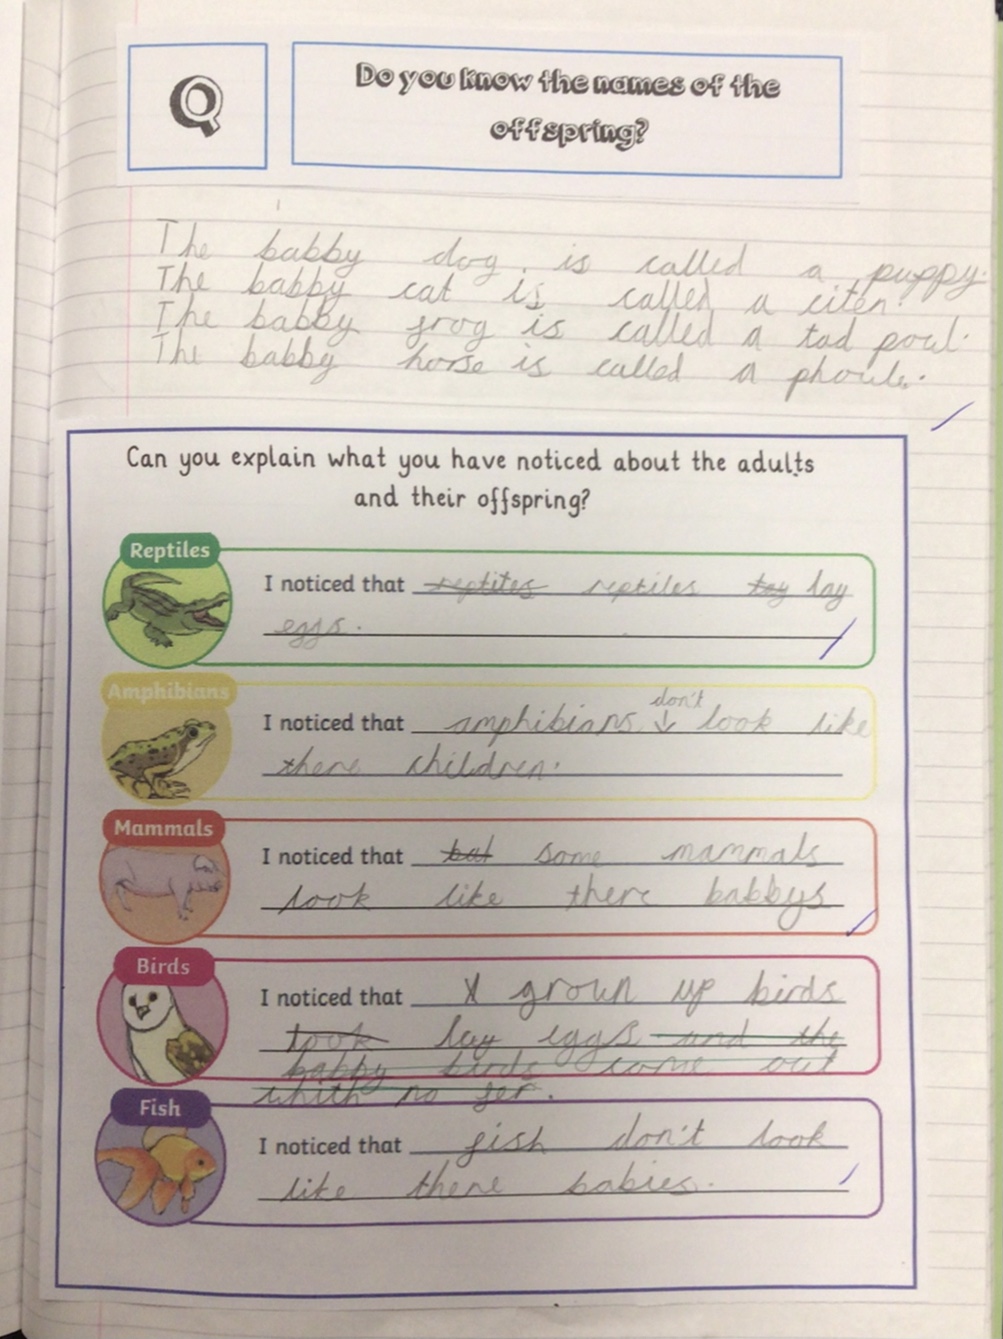 Q
Do you know the names of the
offspring?
The babby dog. is called a puppy.
The babby cat is called a citen.
The babby frog is called a tad poul.
The babby horse is called a phoule.
Can you explain what you have noticed about the adults
and their offspring?
Reptiles
I noticed that reptites reptiles tay lay
eggs.
Amphibians
don't
I noticed that amphibians ↓ look like
there children.
Mammals
I noticed that bat some mammals
look like there babbys
Birds
I noticed that X groun up birds
look lay eggs and the
babby birds come out
whith no fer.
Fish
I noticed that fish don't look
like there babies.